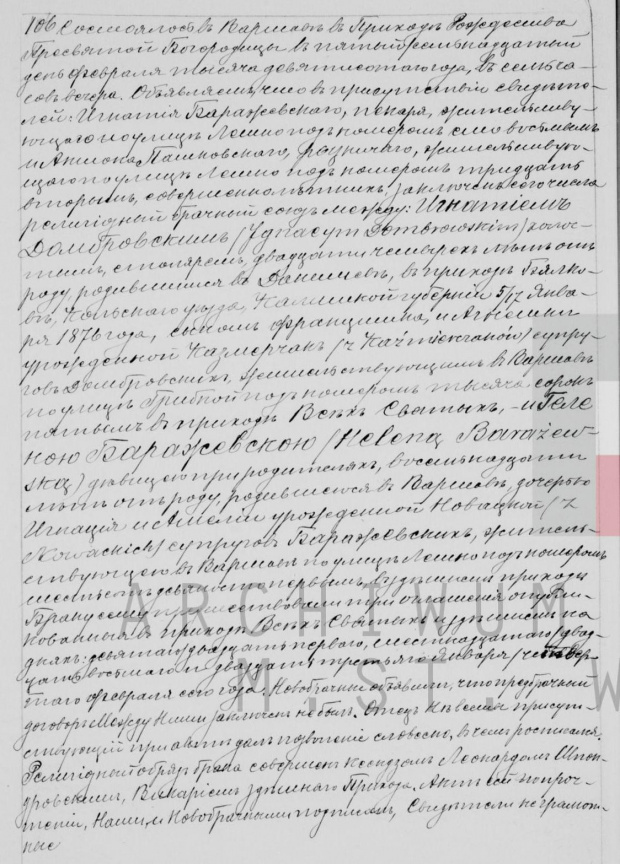 106 Состоялось въ Варшавѣ въ Приходѣ Рождества
Пресвятой Богородицы въ пятый/семнадцатый
день февраля тысяча девятисотаго года, въ семь ча-
совъ вечера. Объявляемъ, что въ присутствіи свидѣте-
лей: Игнатія Баражевскаго, пекаря, жительству-
ющаго по улицѣ Лешно подъ номеромъ сто восьмымъ
и Антона Пашковскаго, жительствую-
щаго по улицѣ Лешно подъ номеромъ тридцать
вторымъ, совершеннолѣтнихъ, заключенъ сего числа
религіозный брачный союзъ между: Игнатіемъ
Домбровскимъ /Ignacym Dombrowskim/ холос-
тымъ, столяремъ, двадцати четырехъ лѣтъ отъ
роду, родившимся въ въ приходѣ
Кольскаго уѣзда, Калишской губерніи 5/17 Янва-
ря 1876 года, сыномъ Францишка, и Агнешки
урожденной Казмерчакъ /z Kaźmierczaków/ супру-
говъ Домбровскихъ, жительствующимъ въ Варшавѣ
по улицѣ подъ номеромъ тысяча сорокъ
пятымъ въ приходѣ Всѣхъ Святыхъ, - и Геле-
ною Баражевскою /Heleną Barażew-
ską/ дѣвицею при родителяхъ, восемнадцати
лѣтъ отъ роду, родившеюся въ Варшавѣ, дочерью
Игнація и Амеліи урожденной Новацкой /z
Nowackich/ супруговъ Баражевскихъ, житель-
ствующею въ Варшавѣ по улицѣ Лешно подъ номеромъ
девяносто первымъ, въ здѣшнемъ приходѣ
Браку сему предшествовали три оглашенія опубли-
кованныя въ приходѣ Всѣхъ Святыхъ и здѣшнемъ на
дняхъ: девятаго/двадцать перваго, шестнадцатаго/двад-
цать восьмаго и двадцать третьяго Января/четвер-
таго февраля сего года. Новобрачные объявили, что предбрачный
договоръ между ними заключенъ не былъ. Отецъ невѣсты присут-
ствующій при актѣ далъ позволеніе словесно, въ чемъ росписался.
Религіозный обрядъ брака совершенъ Ксендзомъ Леонардомъ
Викаріемъ здѣшняго Прихода. Актъ сей по проч-
теніи, Нами, и Новобрачными подписанъ, Свидѣтели неграмот-
ные
ARCHIWUM
M.ST. W